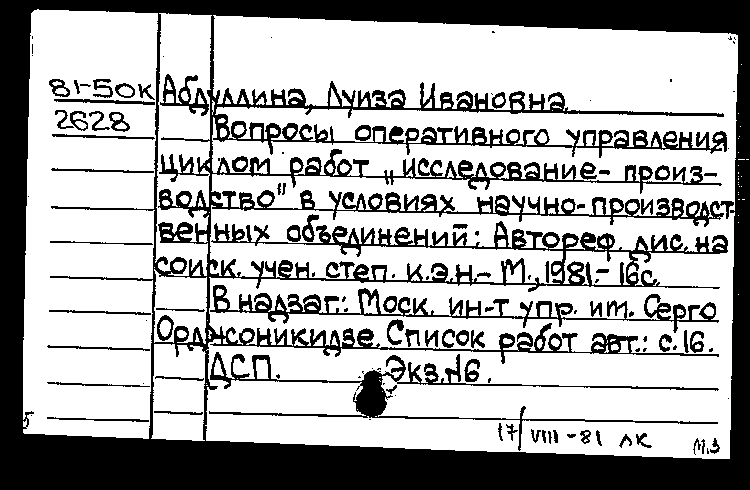 81-50К Абдуллина, Луиза Ивановна.
2628 Вопросы оперативного управления
циклом работ „исследование-произ-
водство" в условиях научно-производст-
венных объединений: Автореф. дис. на
соиск. учен. степ. к.э.н.- М., 1981.- 16с.
В надзаг.: Моск. ин-т упр. им. Серго
Орджоникидзе. Список работ авт.: с.16.
ДСП. Экз.№6.
17/VIII-81 ЛК М.З
5